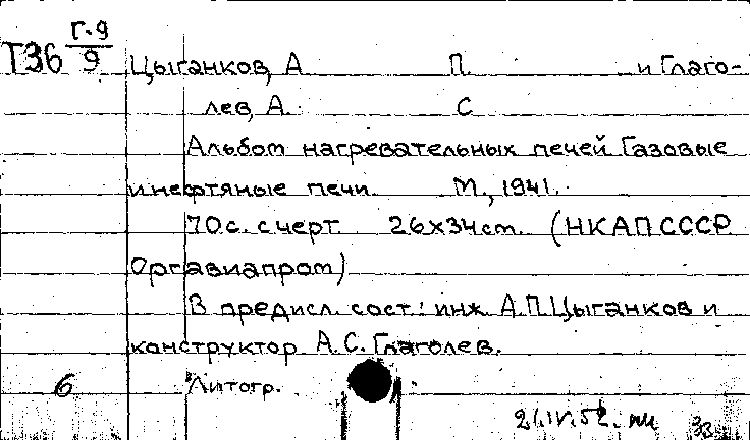 Г.9
Т36 9
Цыганков, А П. и Глаго-
лев, А. С
Альбом нагревательных печей Газовые
и нефтяные печи М., 1941.
70с. с черт 26х34см. (НКАП СССР
Оргавиапром)
В предисл. сост.: инж. А.П.Цыганков и
конструктор А.С.Глаголев.
6 Литогр.